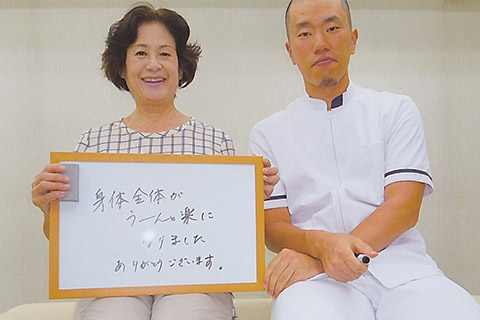 身体全体が
うーんと楽に
なりました
ありがとうございます。